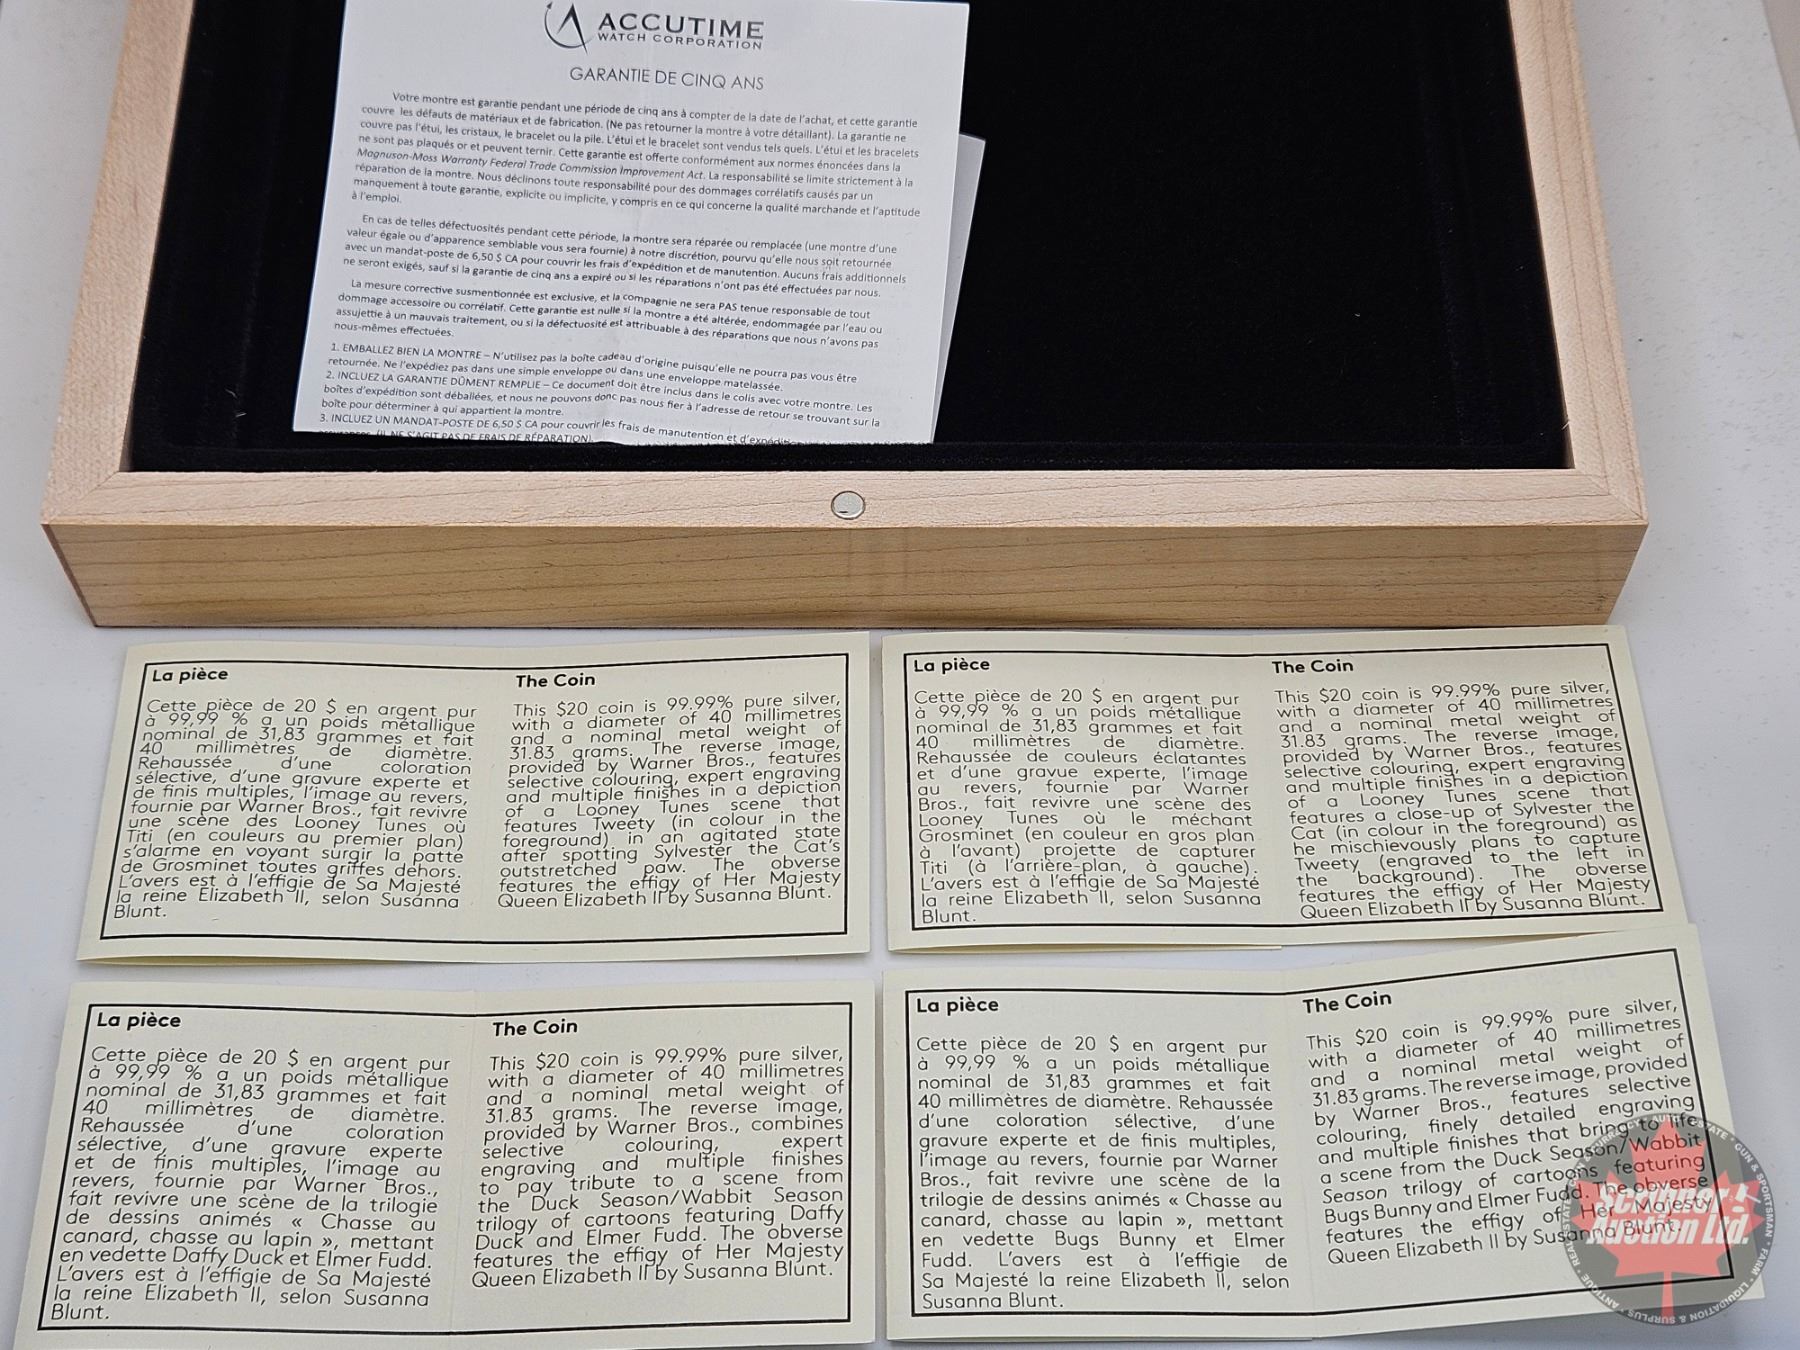 ACCUTIME
WATCH CORPORATION
GARANTIE DE CINQ ANS
Votre montre est garantie pendant une période de cinq ans à compter de la date de l'achat, et cette garantie
couvre les défauts de matériaux et de fabrication. (Ne pas retourner la montre à votre détaillant). La garantie ne
couvre pas l'étui, les cristaux, le bracelet ou la pile. L'étui et le bracelet sont vendus tels quels. L'étui et les bracelets
ne sont pas plaqués or et peuvent ternir. Cette garantie est offerte conformément aux normes énoncées dans la
Magnuson-Moss Warranty Federal Trade Commission Improvement Act. La responsabilité se limite strictement à la
réparation de la montre. Nous déclinons toute responsabilité pour des dommages corrélatifs causés par un
manquement à toute garantie, explicite ou implicite, y compris en ce qui concerne la qualité marchande et l'aptitude
à l'emploi.
En cas de telles défectuosités pendant cette période, la montre sera réparée ou remplacée (une montre d'une
valeur égale ou d'apparence semblable vous sera fournie) à notre discrétion, pourvu qu'elle nous soit retournée
avec un mandat-poste de 6,50 $ CA pour couvrir les frais d'expédition et de manutention. Aucuns frais additionnels
ne seront exigés, sauf si la garantie de cinq ans a expiré ou si les réparations n'ont pas été effectuées par nous.
La mesure corrective susmentionnée est exclusive, et la compagnie ne sera PAS tenue responsable de tout
dommage accessoire ou corrélatif. Cette garantie est nulle si la montre a été altérée, endommagée par l'eau ou
assujettie à un mauvais traitement, ou si la défectuosité est attribuable à des réparations que nous n'avons pas
nous-mêmes effectuées.
1. EMBALLEZ BIEN LA MONTRE – N'utilisez pas la boîte cadeau d'origine puisqu'elle ne pourra pas vous être
retournée. Ne l'expédiez pas dans une simple enveloppe ou dans une enveloppe matelassée.
2. INCLUEZ LA GARANTIE DÛMENT REMPLIE – Ce document doit être inclus dans le colis avec votre montre. Les
boîtes d'expédition sont déballées, et nous ne pouvons donc pas nous fier à l'adresse de retour se trouvant sur la
boîte pour déterminer à qui appartient la montre.
3. INCLUEZ UN MANDAT-POSTE DE 6,50 $ CA pour couvrir les frais de manutention et d'expédition
(IL NE S'AGIT PAS DE FRAIS DE RÉPARATION).
La pièce
Cette pièce de 20 $ en argent pur
à 99,99 % a un poids métallique
nominal de 31,83 grammes et fait
40 millimètres de diamètre.
Rehaussée d'une coloration
sélective, d'une gravure experte et
de finis multiples, l'image au revers,
fournie par Warner Bros., fait revivre
une scène des Looney Tunes où
Titi (en couleurs au premier plan)
s'alarme en voyant surgir la patte
de Grosminet toutes griffes dehors.
L'avers est à l'effigie de Sa Majesté
la reine Elizabeth II, selon Susanna
Blunt.
The Coin
This $20 coin is 99.99% pure silver,
with a diameter of 40 millimetres
and a nominal metal weight of
31.83 grams. The reverse image,
provided by Warner Bros., features
selective colouring, expert engraving
and multiple finishes in a depiction
of a Looney Tunes scene that
features Tweety (in colour in the
foreground) in an agitated state
after spotting Sylvester the Cat's
outstretched paw. The obverse
features the effigy of Her Majesty
Queen Elizabeth II by Susanna Blunt.
La pièce
Cette pièce de 20 $ en argent pur
à 99,99 % a un poids métallique
nominal de 31,83 grammes et fait
40 millimètres de diamètre.
Rehaussée de couleurs éclatantes
et d'une gravue experte, l'image
au revers, fournie par Warner
Bros., fait revivre une scène des
Looney Tunes où le méchant
Grosminet (en couleur en gros plan
à l'avant) projette de capturer
Titi (à l'arrière-plan, à gauche).
L'avers est à l'effigie de Sa Majesté
la reine Elizabeth II, selon Susanna
Blunt.
The Coin
This $20 coin is 99.99% pure silver,
with a diameter of 40 millimetres
and a nominal metal weight of
31.83 grams. The reverse image,
provided by Warner Bros., features
selective colouring, expert engraving
and multiple finishes in a depiction
of a Looney Tunes scene that
features a close-up of Sylvester the
Cat (in colour in the foreground) as
he mischievously plans to capture
Tweety (engraved to the left in
the background). The obverse
features the effigy of Her Majesty
Queen Elizabeth II by Susanna Blunt.
La pièce
Cette pièce de 20 $ en argent pur
à 99,99 % a un poids métallique
nominal de 31,83 grammes et fait
40 millimètres de diamètre.
Rehaussée d'une coloration
sélective, d'une gravure experte
et de finis multiples, l'image au
revers, fournie par Warner Bros.,
fait revivre une scène de la trilogie
de dessins animés « Chasse au
canard, chasse au lapin », mettant
en vedette Daffy Duck et Elmer Fudd.
L'avers est à l'effigie de Sa Majesté
la reine Elizabeth II, selon Susanna
Blunt.
The Coin
This $20 coin is 99.99% pure silver,
with a diameter of 40 millimetres
and a nominal metal weight of
31.83 grams. The reverse image,
provided by Warner Bros., combines
selective colouring, expert
engraving and multiple finishes
to pay tribute to a scene from
the Duck Season/Wabbit Season
trilogy of cartoons featuring Daffy
Duck and Elmer Fudd. The obverse
features the effigy of Her Majesty
Queen Elizabeth II by Susanna Blunt.
La pièce
Cette pièce de 20 $ en argent pur
à 99,99 % a un poids métallique
nominal de 31,83 grammes et fait
40 millimètres de diamètre. Rehaussée
d'une coloration sélective, d'une
gravure experte et de finis multiples,
l'image au revers, fournie par Warner
Bros., fait revivre une scène de la
trilogie de dessins animés « Chasse au
canard, chasse au lapin », mettant
en vedette Bugs Bunny et Elmer
Fudd. L'avers est à l'effigie de
Sa Majesté la reine Elizabeth II, selon
Susanna Blunt.
The Coin
This $20 coin is 99.99% pure silver,
with a diameter of 40 millimetres
and a nominal metal weight of
31.83 grams. The reverse image, provided
by Warner Bros., features selective
colouring, finely detailed engraving
and multiple finishes that bring to life
a scene from the Duck Season/Wabbit
Season trilogy of cartoons featuring
Bugs Bunny and Elmer Fudd. The obverse
features the effigy of Her Majesty
Queen Elizabeth II by Susanna Blunt.
Scribner
Auction Ltd.